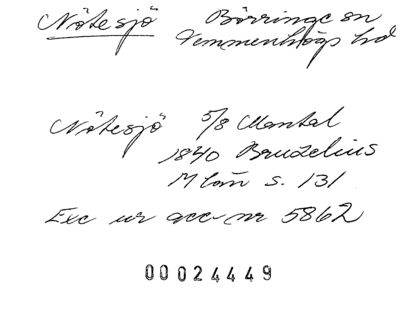 Nötesjö Börringe sn
Vemmenhögs hd
Nötesjö 5/8 Mantal
1840 Bruzelius
M län s. 131
Exc ur acc-nr 5862
00024449